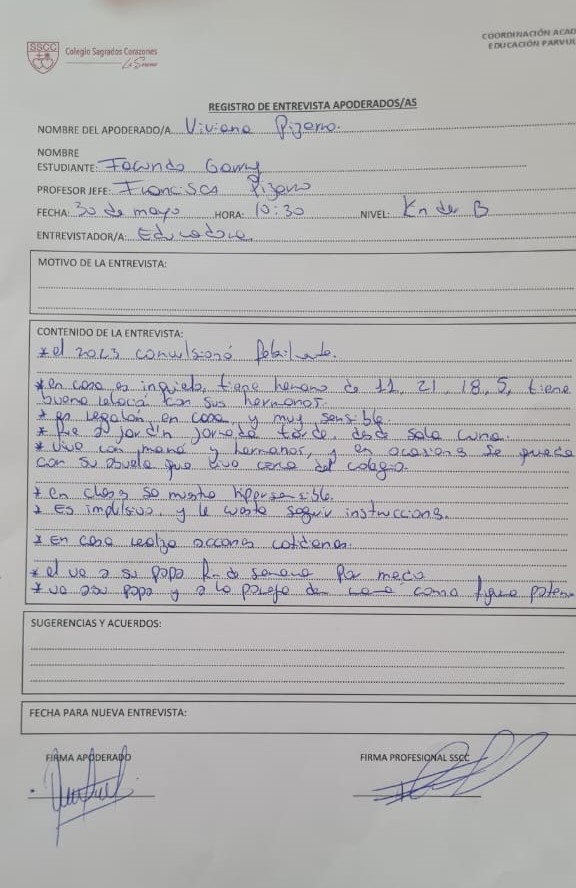 COORDINACIÓN ACAD
EDUCACIÓN PARVUL
SSCC
Colegio Sagrados Corazones
La Serena
REGISTRO DE ENTREVISTA APODERADOS/AS
NOMBRE DEL APODERADO/A Viviana Pizarro.
NOMBRE
ESTUDIANTE: Facundo
PROFESOR JEFE: Francisca Pizarro
FECHA: 30 de mayo HORA: 10:30 NIVEL: Kinder B
ENTREVISTADOR/A: Educadora
MOTIVO DE LA ENTREVISTA:
CONTENIDO DE LA ENTREVISTA:
* el 2023 convulsionó
* en casa es inquieto, tiene hermano de 11, 21, 18, 5, tiene
buena relación con sus hermanos.
* es regalón en casa y muy sensible.
* fue a jardín jornada tarde, desde sala cuna.
* Vive con mamá y hermanos, y en ocasiones se queda
con su abuela que vive cerca del colegio.
* en clases se muestra hipersensible.
* Es impulsivo y le cuesta seguir instrucciones.
* En casa realiza acciones cotidianas.
* el ve a su papá fin de semana por medio
* ve a su papá y a la pareja de como figura patern
SUGERENCIAS Y ACUERDOS:
FECHA PARA NUEVA ENTREVISTA:
FIRMA APODERADO FIRMA PROFESIONAL SSCC